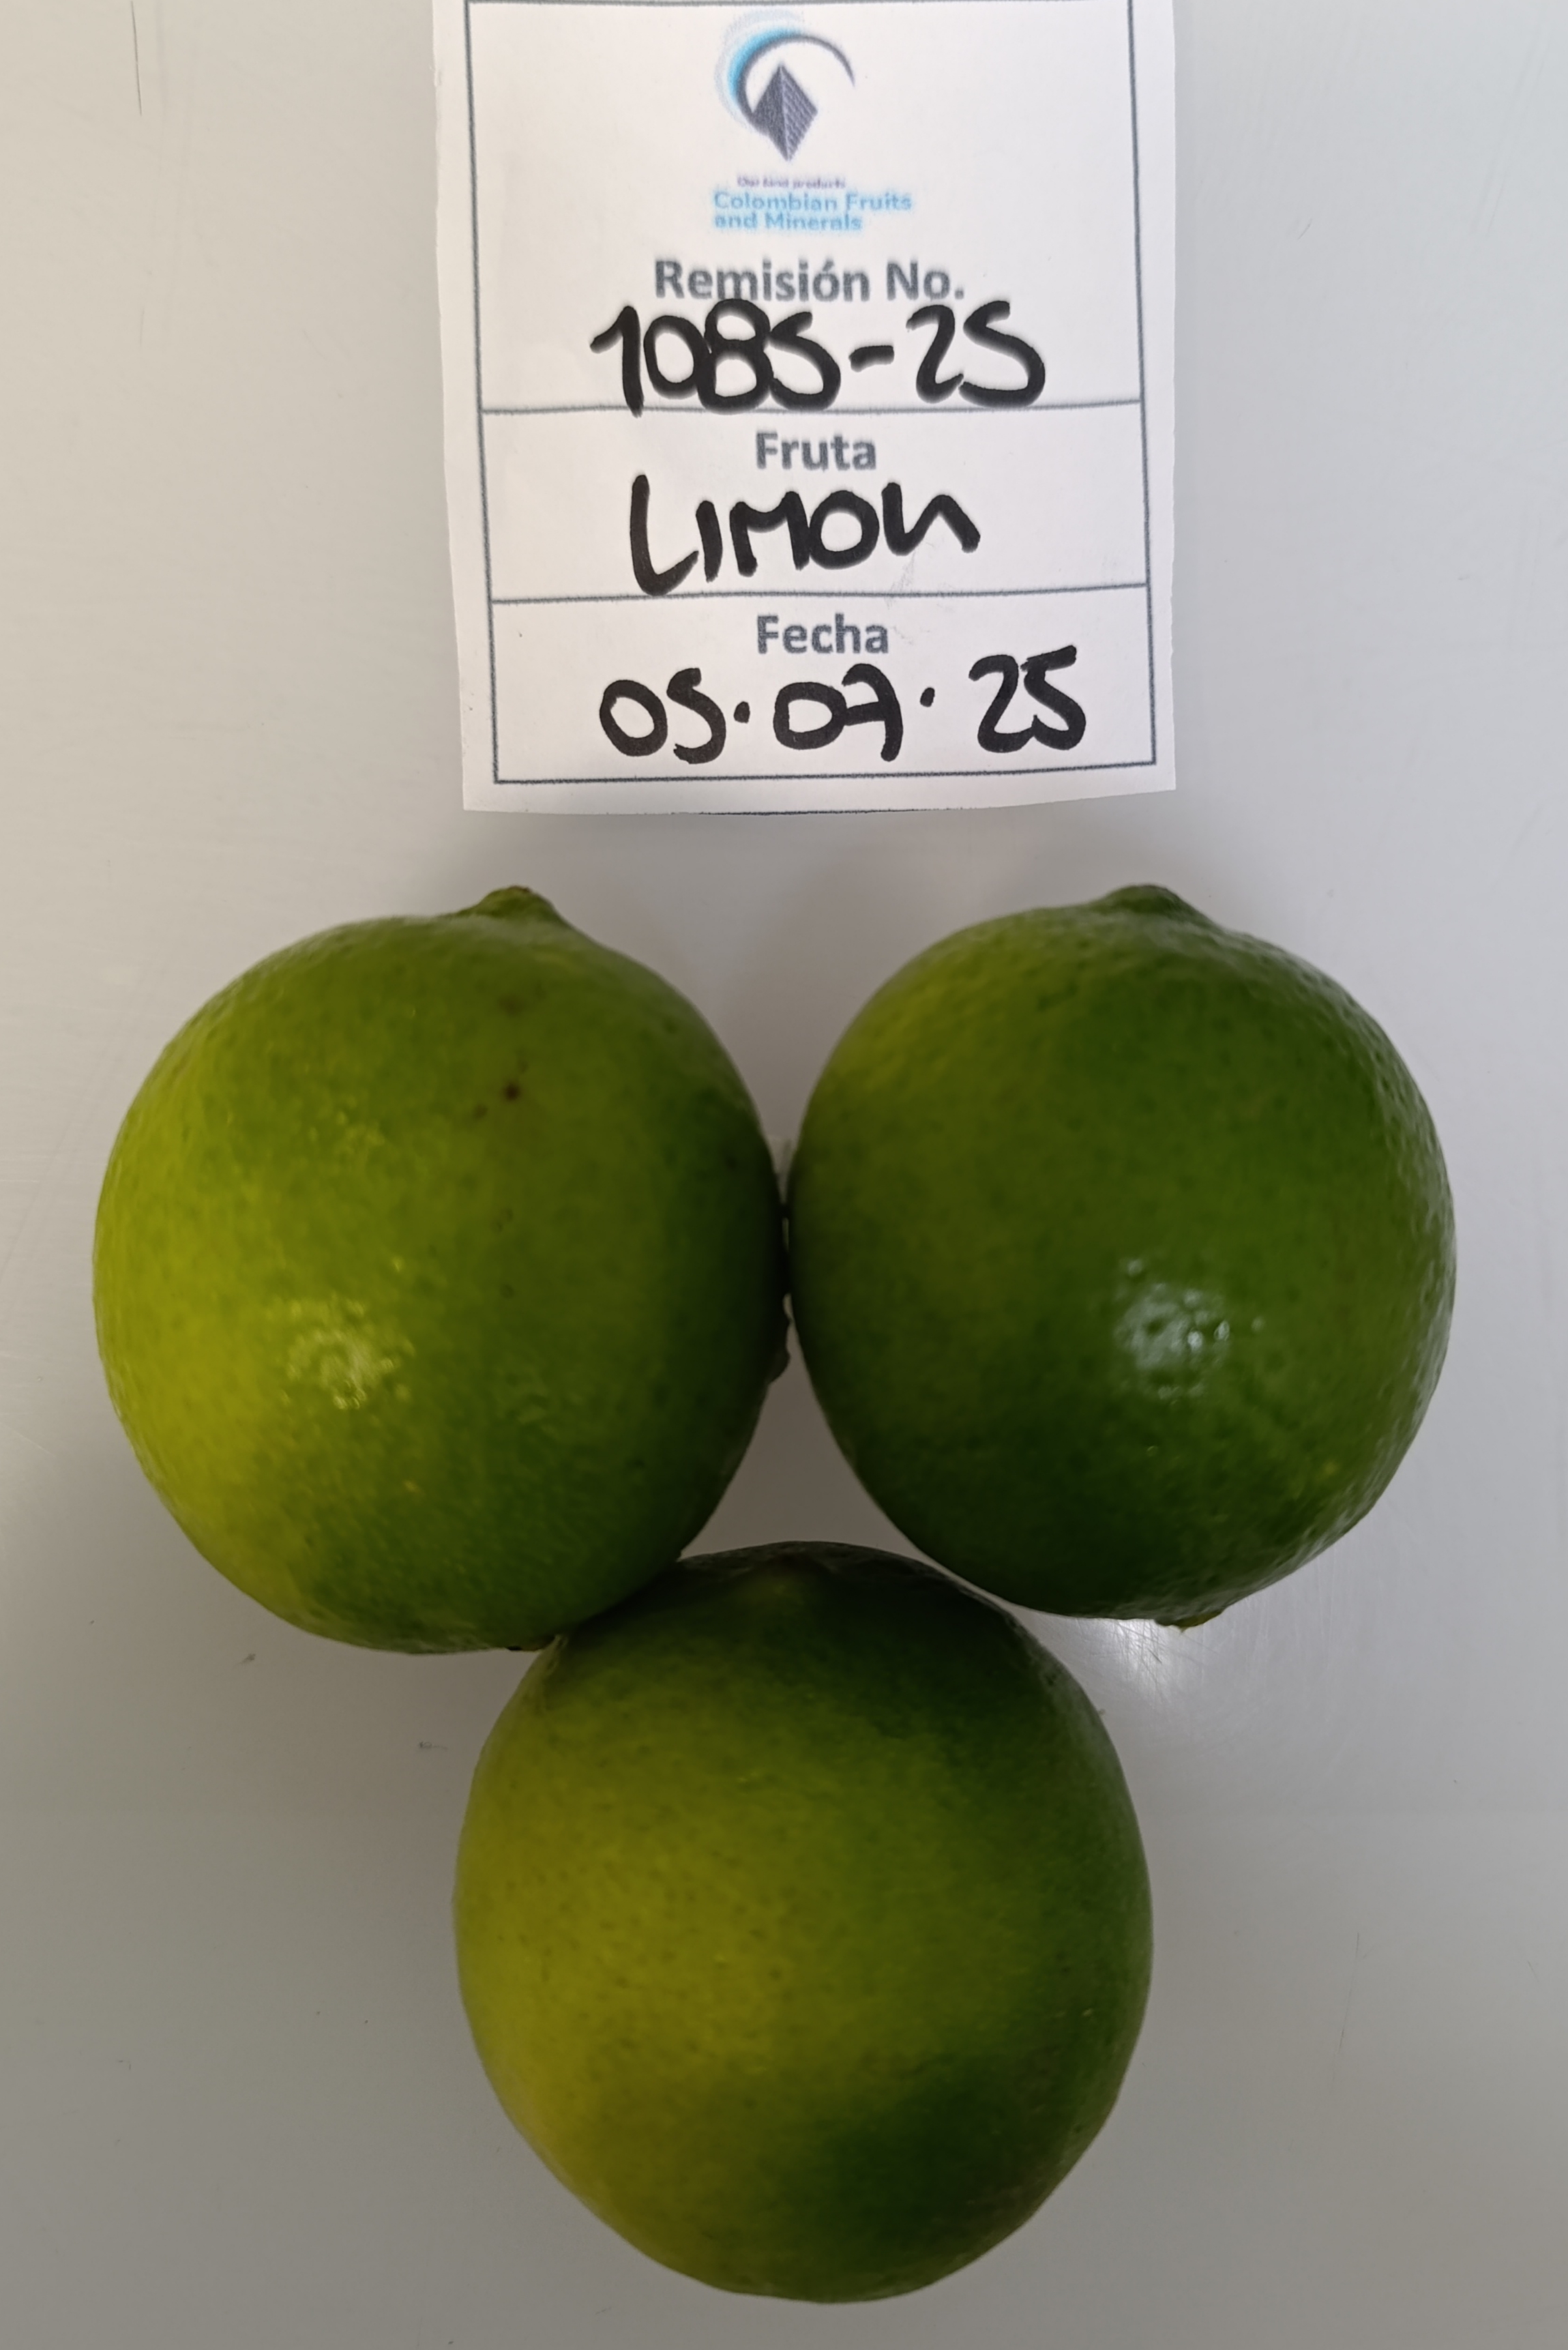 Our land products
Colombian Fruits
and Minerals
Remisión No.
1085-25
Fruta
LIMON
Fecha
05·07·25